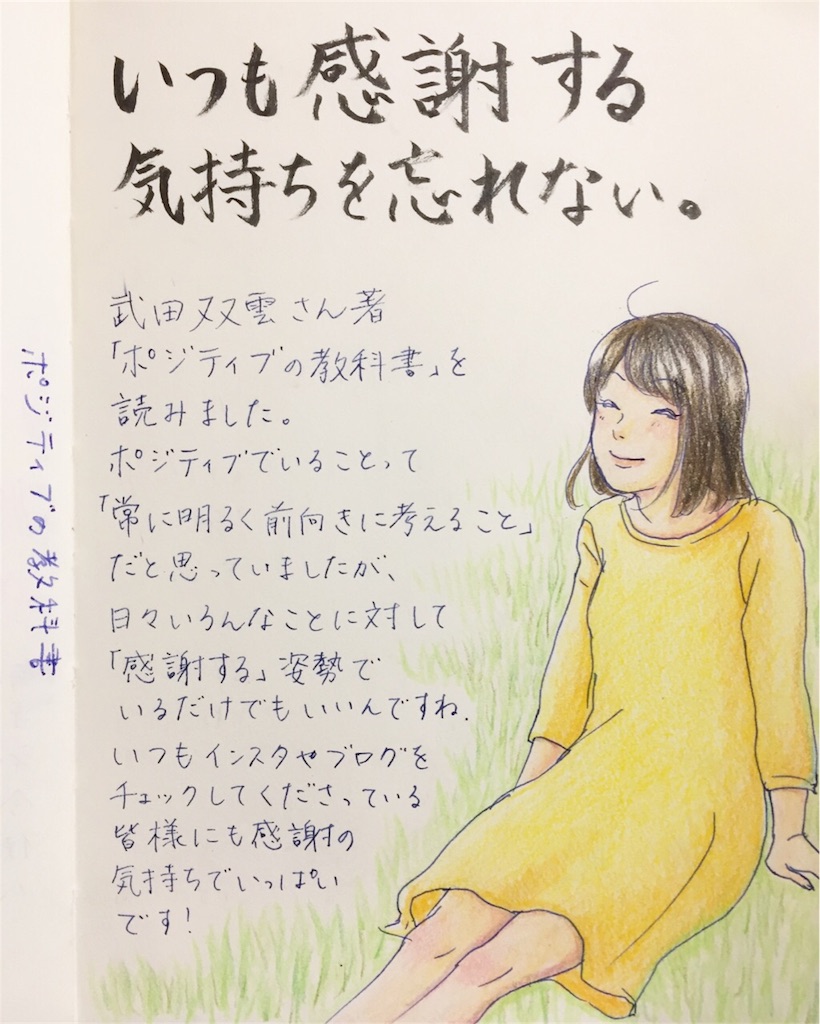 いつも感謝する
気持ちを忘れない。
武田双雲さん著
「ポジティブの教科書」を
読みました。
ポジティブでいることって
「常に明るく前向きに考えること」
だと思っていましたが、
日々いろんなことに対して
「感謝する」姿勢で
いるだけでもいいんですね.
いつもインスタやブログを
チェックしてくださっている
皆様にも感謝の
気持ちでいっぱい
です!
ポジティブの教科書